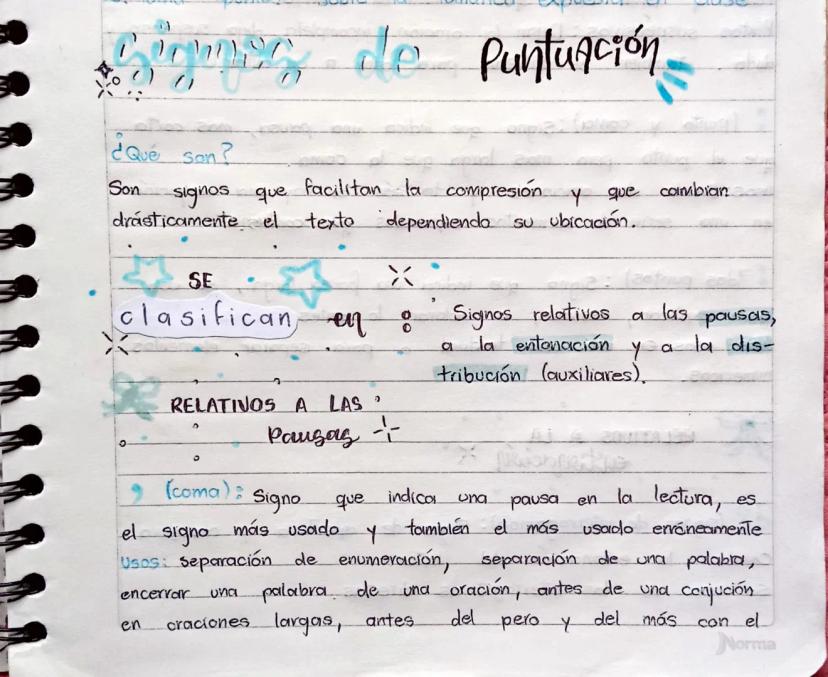 signos de Puntuación
¿Qué son?
Son signos que facilitan la compresión y que cambian
drásticamente el texto dependiendo su ubicación.
SE
clasifican en :
Signos relativos a las pausas,
a la entonación y a la dis-
tribución (auxiliares).
RELATIVOS A LAS
Pausas
, (coma): Signo que indica una pausa en la lectura, es
el signo más usado y también el más usado erróneamente
Usos: separación de enumeración, separación de una palabra,
encerrar una palabra de una oración, antes de una conjución
en oraciones largas, antes del pero y del más con el
Norma